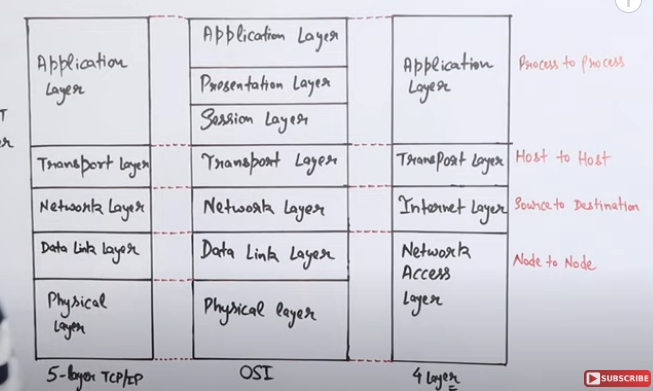 Application Layer
Transport Layer
Network Layer
Data Link Layer
Physical Layer
5-layer TCP/IP
Application Layer
Presentation Layer
Session Layer
Transport Layer
Network Layer
Data Link Layer
Physical layer
OSI
Application Layer
Transport Layer
Internet Layer
Network Access Layer
4 Layer
Process to Process
Host to Host
Source to Destination
Node to Node
SUBSCRIBE